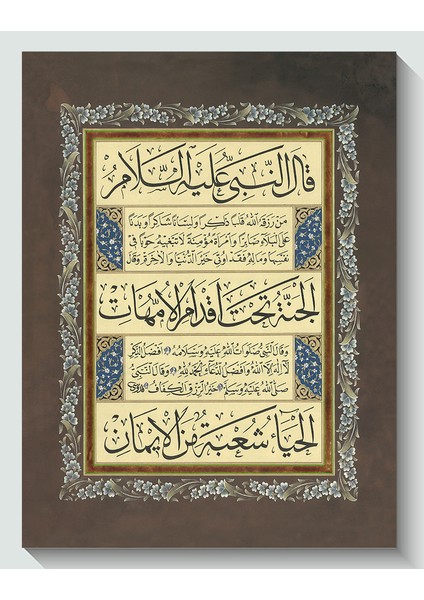 قال النبي عليه السلام
من رزقه الله قلبا ذاكرا ولسانا شاكرا وبدنا
على البلاء صابرا وامرأة مؤمنة لا تبغيه حوبا في
نفسها وماله فقد اوتي خير الدنيا والآخرة وقال
الجنة تحت اقدام الامهات
وقال النبي صلوات الله عليه وسلامه افضل الذكر
لا إله إلا الله وافضل الدعاء الحمد لله وقال النبي
صلى الله عليه وسلم خير الرزق الكفاف
الحياء شعبة من الإيمان